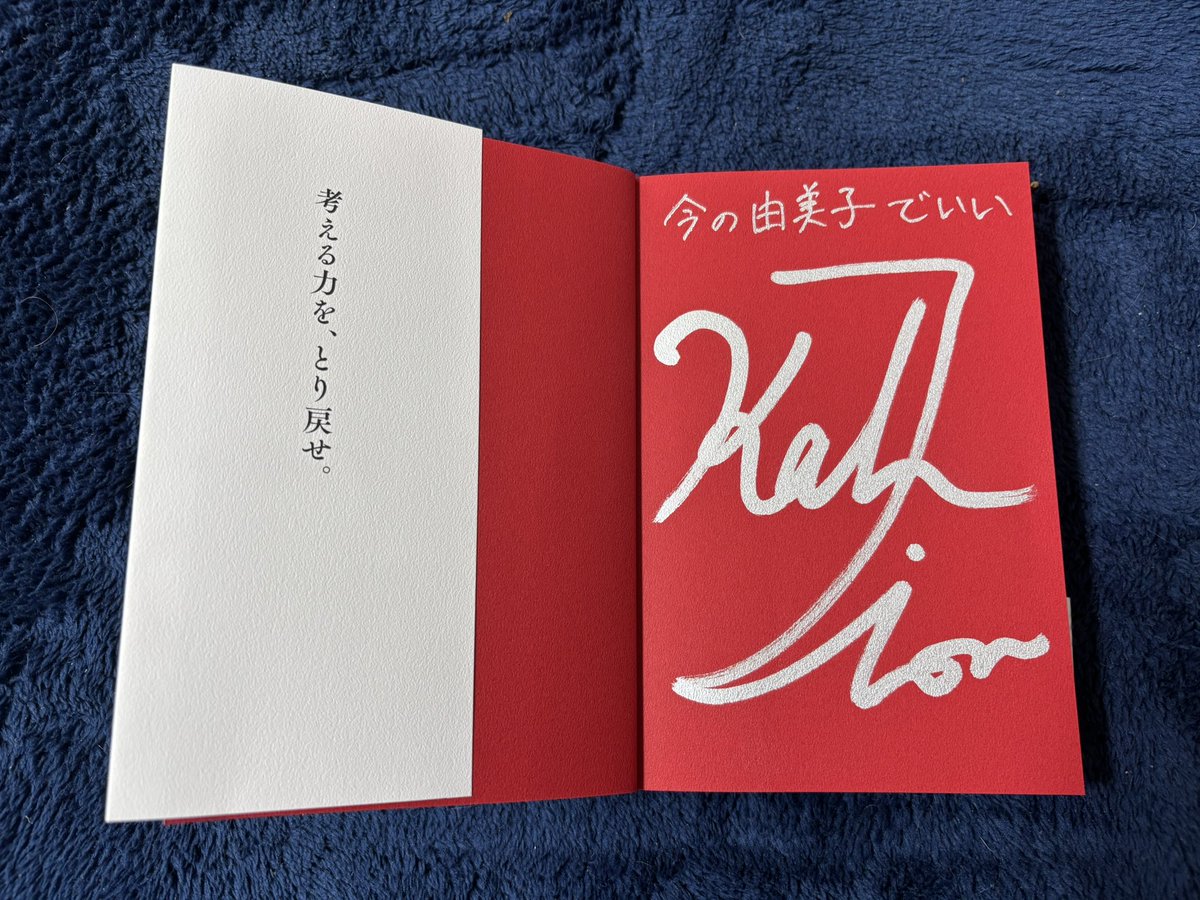 考える力を、とり戻せ。
今の由美子でいい